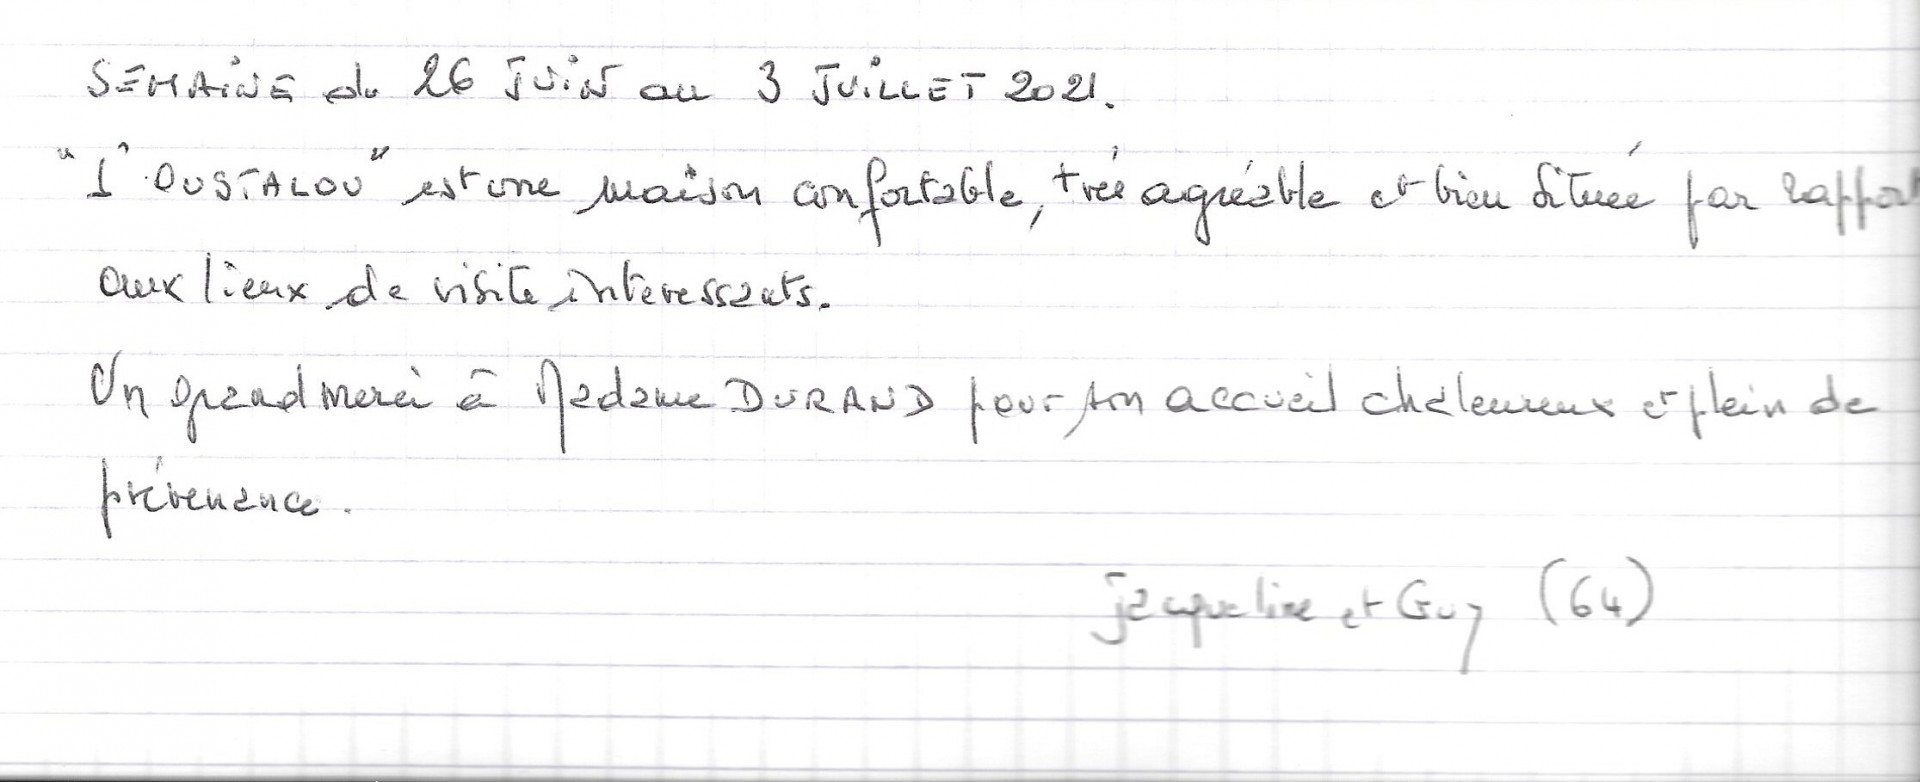 SEMAINE du 26 JUIN au 3 JUILLET 2021.
"L'OUSTALOU" est une maison confortable, très agréable et bien située par rapport
aux lieux de visite intéressants.
Un grand merci à Madame DURAND pour son accueil chaleureux et plein de
prévenance.
Jacqueline et Guy (64)